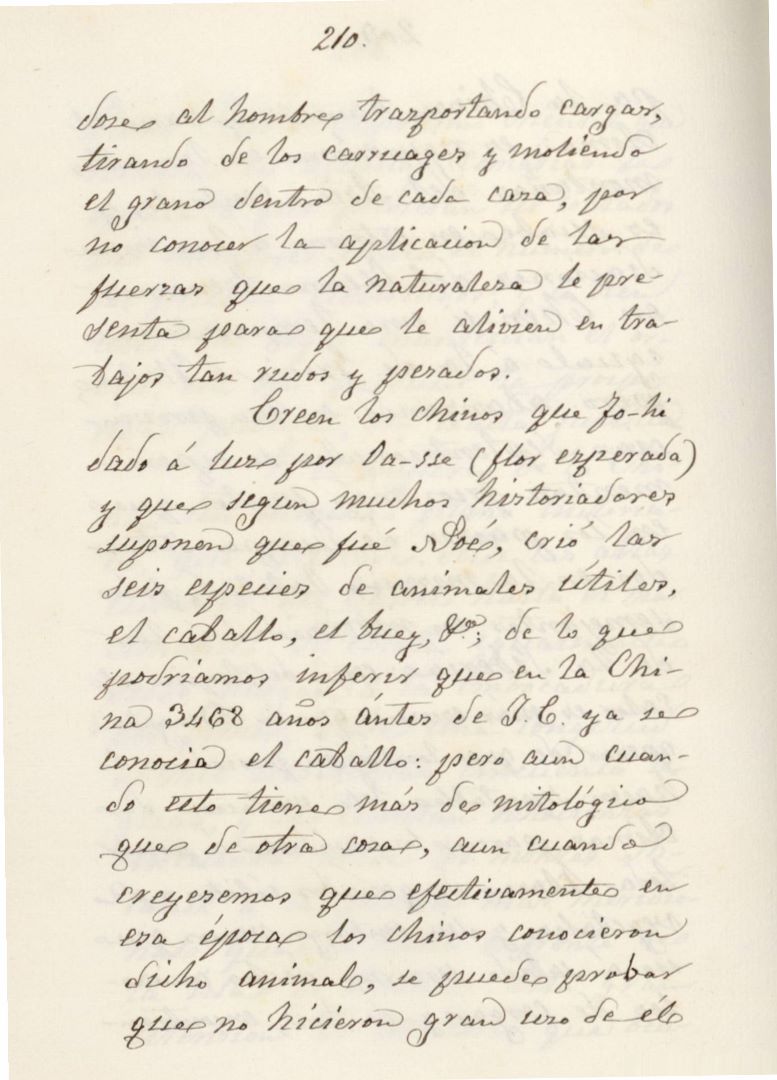 210.
dose al hombre trasportando cargas,
tirando de los carruages y moliendo
el grano dentro de cada casa, por
no conocer la aplicacion de las
fuerzas que la naturaleza le pre-
senta para que le alivien en tra-
bajos tan rudos y pesados.
Creen los chinos que Fo-hi
dado á luz por Oa-sse (flor esperada)
y que segun muchos historiadores
suponen que fué Noé, crió las
seis especies de animales útiles,
el caballo, el buey, &.ª; de lo que
podriamos inferir que en la Chi-
na 3468 años ántes de J. C. ya se
conocia el caballo: pero aun cuan-
do esto tiene más de mitológico
que de otra cosa, aun cuando
creyesemos que efectivamente en
esa época los chinos conocieron
dicho animal, se puede probar
que no hicieron gran uso de él